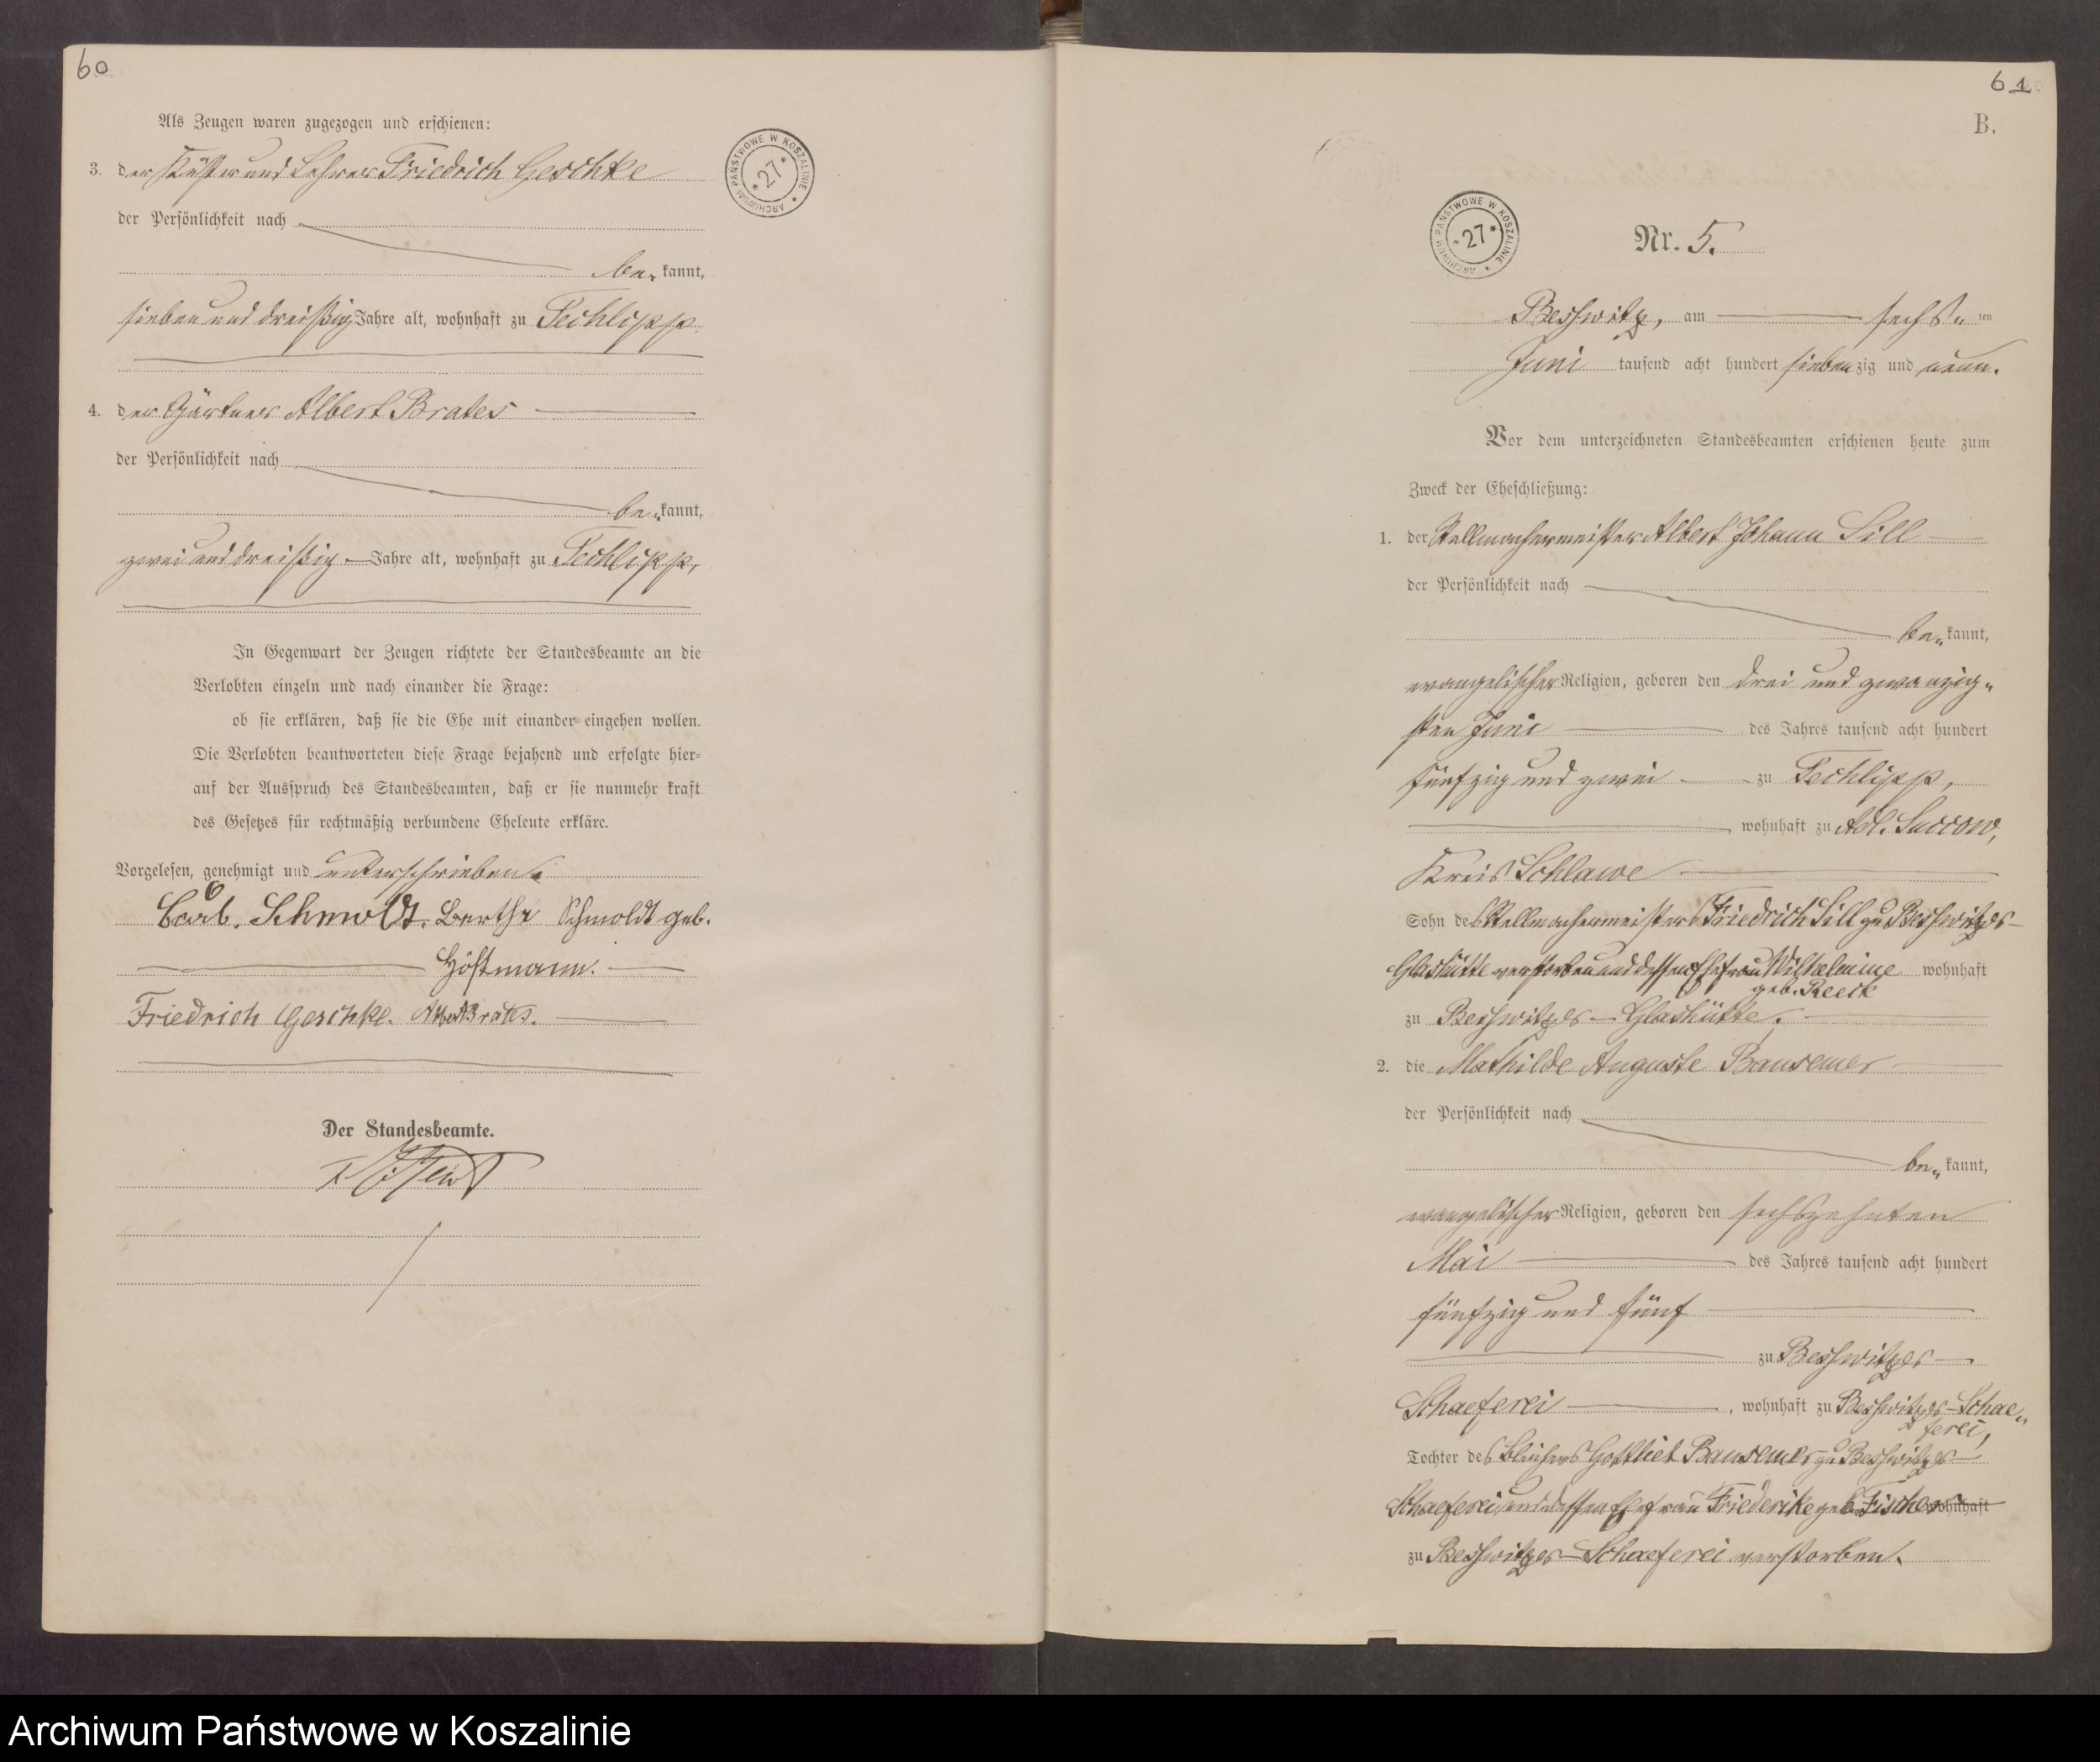 60
Als Zeugen waren zugezogen und erschienen:
3. der Küster und Lehrer Friedrich Geschke
der Persönlichkeit nach
be- kannt,
sieben und dreißig Jahre alt, wohnhaft zu Techlipp
4. der Gärtner Albert Brates
der Persönlichkeit nach
be- kannt,
zwei und dreißig Jahre alt, wohnhaft zu Techlipp,
In Gegenwart der Zeugen richtete der Standesbeamte an die
Verlobten einzeln und nach einander die Frage:
ob sie erklären, daß sie die Ehe mit einander eingehen wollen.
Die Verlobten beantworteten diese Frage bejahend und erfolgte hier-
auf der Ausspruch des Standesbeamten, daß er sie nunmehr kraft
des Gesetzes für rechtmäßig verbundene Eheleute erkläre.
Vorgelesen, genehmigt und unterschrieben.
Schmoldt. Bertha Schmoldt geb.
Höftmann.
Friedrich Geschke. Albert Brates.
Der Standesbeamte.
ARCHIWUM PAŃSTWOWE W KOSZALINIE
* 27 *
61
B.
ARCHIWUM PAŃSTWOWE W KOSZALINIE
* 27 *
Nr. 5.
Besswitz, am sechs- ten
Juni tausend acht hundert siebenzig und neun.
Vor dem unterzeichneten Standesbeamten erschienen heute zum
Zweck der Eheschließung:
1. der Stellmachermeister Albert Johann Sill
der Persönlichkeit nach
be- kannt,
evangelischer Religion, geboren den drei und zwanzig-
sten Juni des Jahres tausend acht hundert
fünfzig und zwei zu Techlipp,
wohnhaft zu Adl. Succow,
Kreis Schlawe
Sohn des Stellmachermeisters Friedrich Sill zu Besswitzer-
Glashütte verstorben und dessen Ehefrau Wilhelmine wohnhaft
geb. Reeck
zu Besswitzer-Glashütte.
2. die Mathilde Auguste Bansemer
der Persönlichkeit nach
be- kannt,
evangelischer Religion, geboren den sechszehnten
Mai des Jahres tausend acht hundert
fünfzig und fünf
zu Besswitzer-
Schaeferei, wohnhaft zu Besswitzer-Schae-
ferei,
Tochter des Gottlieb Bansemer zu Besswitzer-
Schaeferei und dessen Ehefrau Friederike geb. Fischer wohnhaft
zu Besswitzer-Schaeferei verstorben.
Archiwum Państwowe w Koszalinie